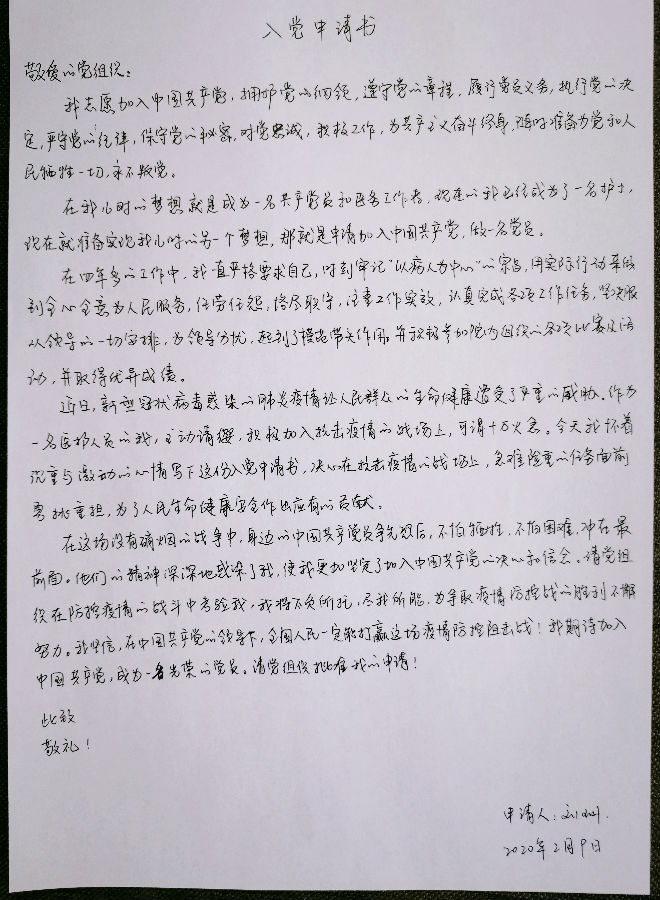 入党申请书
敬爱的党组织：
我志愿加入中国共产党，拥护党的纲领，遵守党的章程，履行党员义务，执行党的决
定，严守党的纪律，保守党的秘密，对党忠诚，积极工作，为共产主义奋斗终身，随时准备为党和人
民牺牲一切，永不叛党。
在我儿时的梦想就是成为一名共产党员和医务工作者，现在的我已经成为了一名护士，
现在就准备实现我儿时的另一个梦想，那就是申请加入中国共产党，做一名党员。
在四年多的工作中，我一直严格要求自己，时刻牢记“以病人为中心”的宗旨，用实际行动来做
到全心全意为人民服务，任劳任怨，恪尽职守，注重工作实效，认真完成各项工作任务，坚决服
从领导的一切安排，为领导分忧，起到了模范带头作用。并积极参加院内组织的各项比赛及活
动，并取得优异成绩。
近日，新型冠状病毒感染的肺炎疫情让人民群众的生命健康遭受了严重的威胁。作为
一名医护人员的我，主动请缨，积极加入抗击疫情的战场上，可谓十万火急。今天我怀着
沉重与激动的心情写下这份入党申请书，决心在抗击疫情的战场上，急难险重的任务面前
勇挑重担，为了人民生命健康安全作出应有的贡献。
在这场没有硝烟的战争中，身边的中国共产党员争先恐后，不怕牺牲，不怕困难，冲在最
前面。他们的精神深深地感染了我，使我更加坚定了加入中国共产党的决心和信念。请党组
织在防控疫情的战斗中考验我，我将不负所托，尽我所能，为争取疫情防控战的胜利不懈
努力。我坚信，在中国共产党的领导下，全国人民一定能打赢这场疫情防控阻击战！我期待加入
中国共产党，成为一名光荣的党员。请党组织批准我的申请！
此致
敬礼！
申请人：刘
2020年2月9日